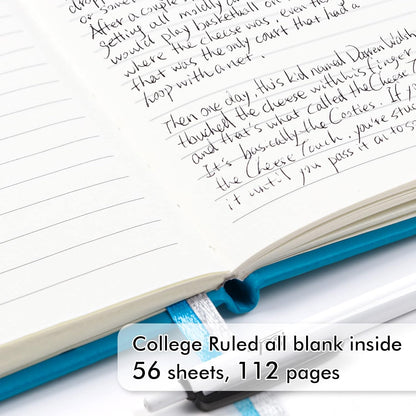 or some
After a couple
getting all moldy and
would play basketball on
where the cheese was, even tho
that was the only court that had a
hoop with a net.
Then one day, this kid named Darren Walsh
touched the cheese with his finger,
and that's what called the Cheese T
It's basically the Cooties. If you
the Cheese Touch, you're stu
it until you pass it on to so
College Ruled all blank inside
56 sheets, 112 pages